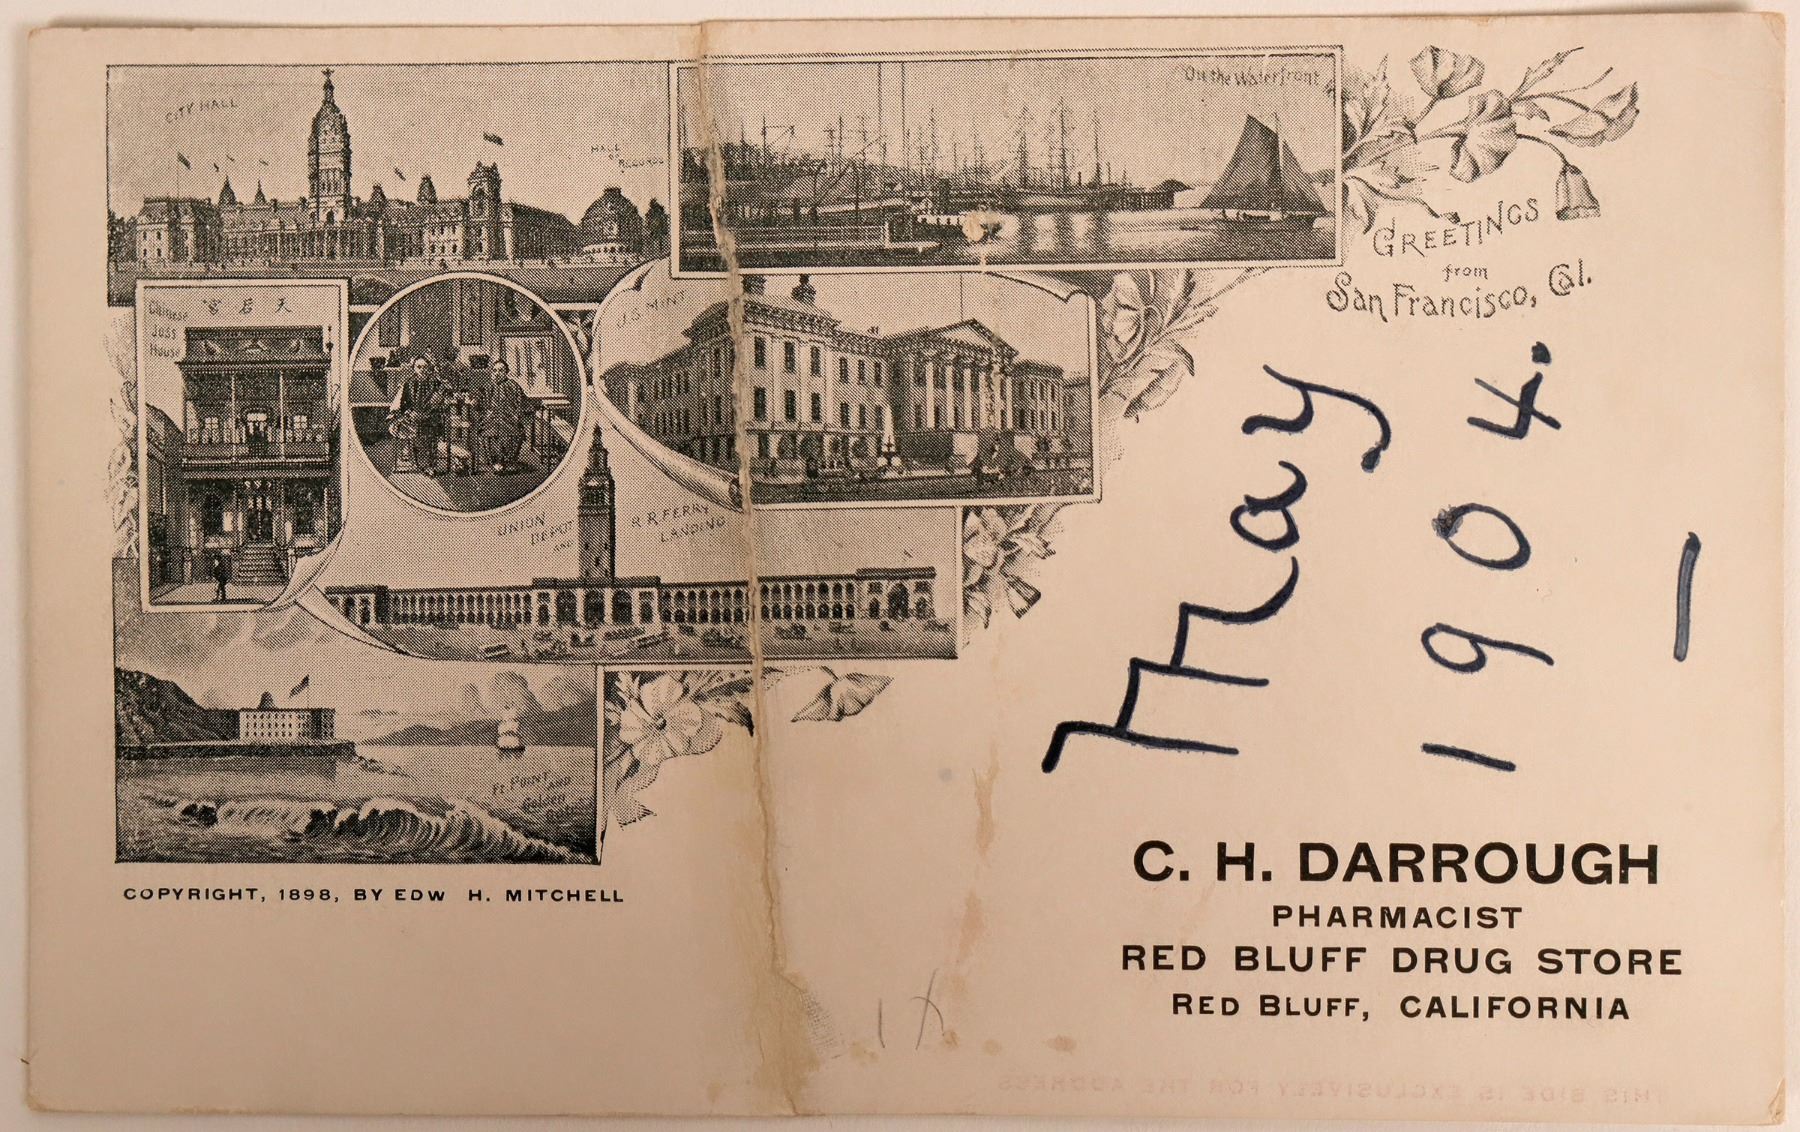 CITY HALL
HALL
OF
RECORDS
On the Waterfront
GREETINGS
from
San Francisco, Cal.
Chinese
Joss
House
宮后天
U.S. MINT
UNION
DEPOT
AND
R.R. FERRY
LANDING
Ft. POINT
AND
Golden
May
1904.
—
COPYRIGHT, 1898, BY EDW H. MITCHELL
C. H. DARROUGH
PHARMACIST
RED BLUFF DRUG STORE
RED BLUFF, CALIFORNIA
THIS SIDE IS EXCLUSIVELY FOR THE ADDRESS